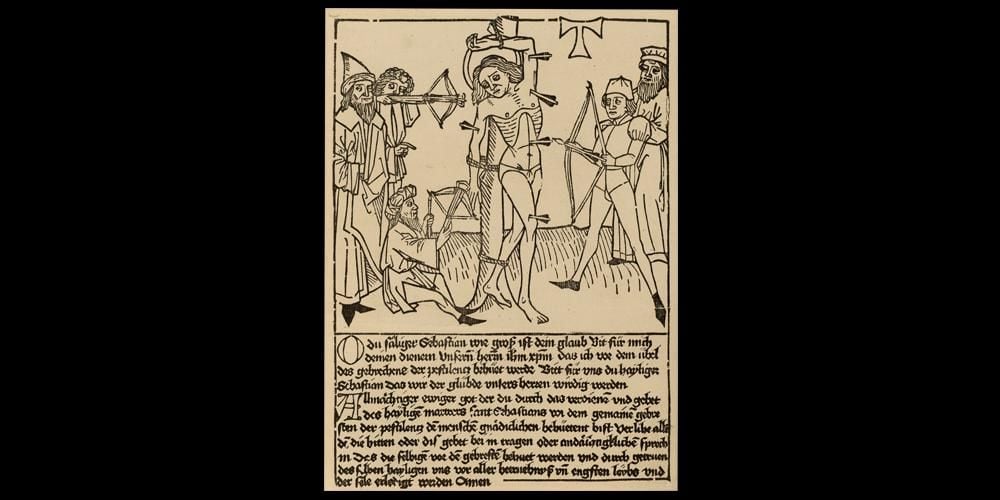 O du säliger Sebastian wie groß ist dein glaub Bit für mich
deinen dienern Unsern herrn ihm xpm das ich vor dem übel
des gebrechens der pestilencz behüet werde Bitt für uns du hayliger
Sebastian das wir der glübde unsers herren wirdig werden
Allmächtiger ewiger got der du durch das verdienen und gebet
des hayligen martrers sant Sebastians vor dem gemainen gebre
sten der pestilencz de mensche gnädiclichen behüetent bist Verlihe alle
de die bitten oder dis gebet bei in tragen oder andächtigklichen sprech
in Das die selbigen vor de gebresten behuet werden und durch getruen
des selben hayligen uns vor aller betruebnyß un engsten loybs und
der sele erlediget werden Amen